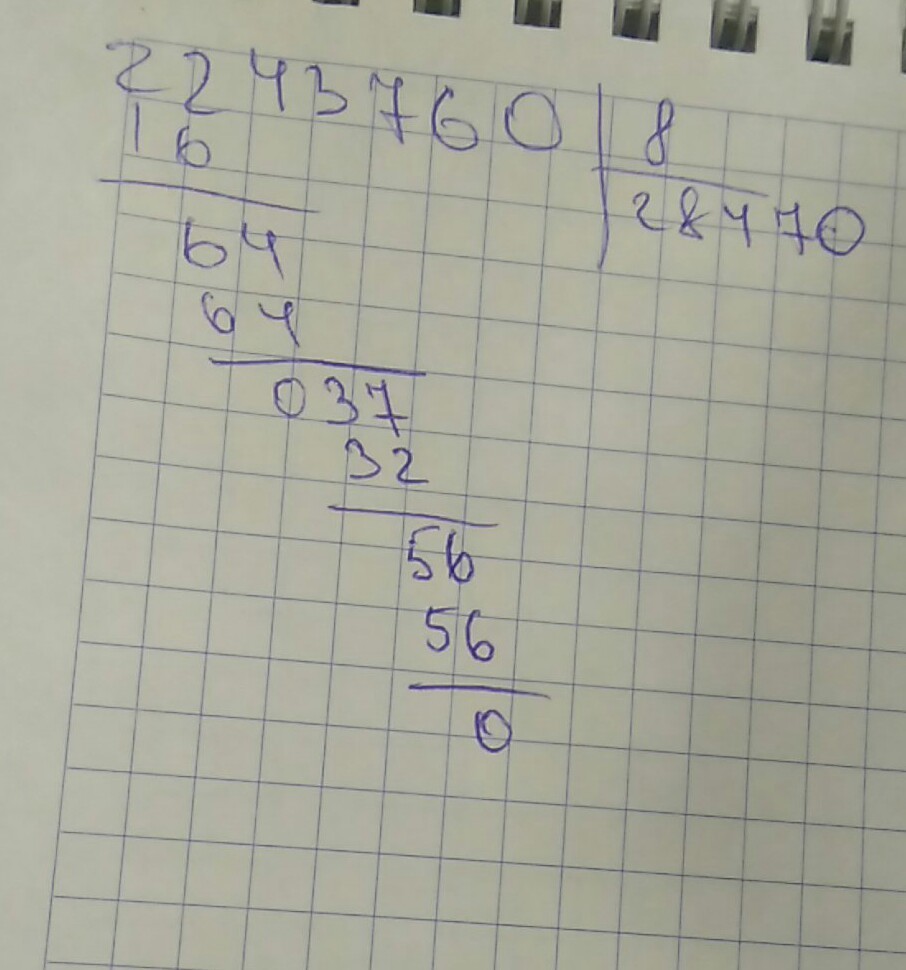 2243760 8
16 28470
64
64
037
32
56
56
0